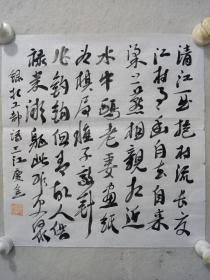 清江一曲抱村流长夏
江村事々幽自去自来
梁上燕相親相近
水中鷗老妻畫紙
为棋局稚子敲針
作釣鉤但有故人供
禄米微躯此外更何
錄杜工部詩